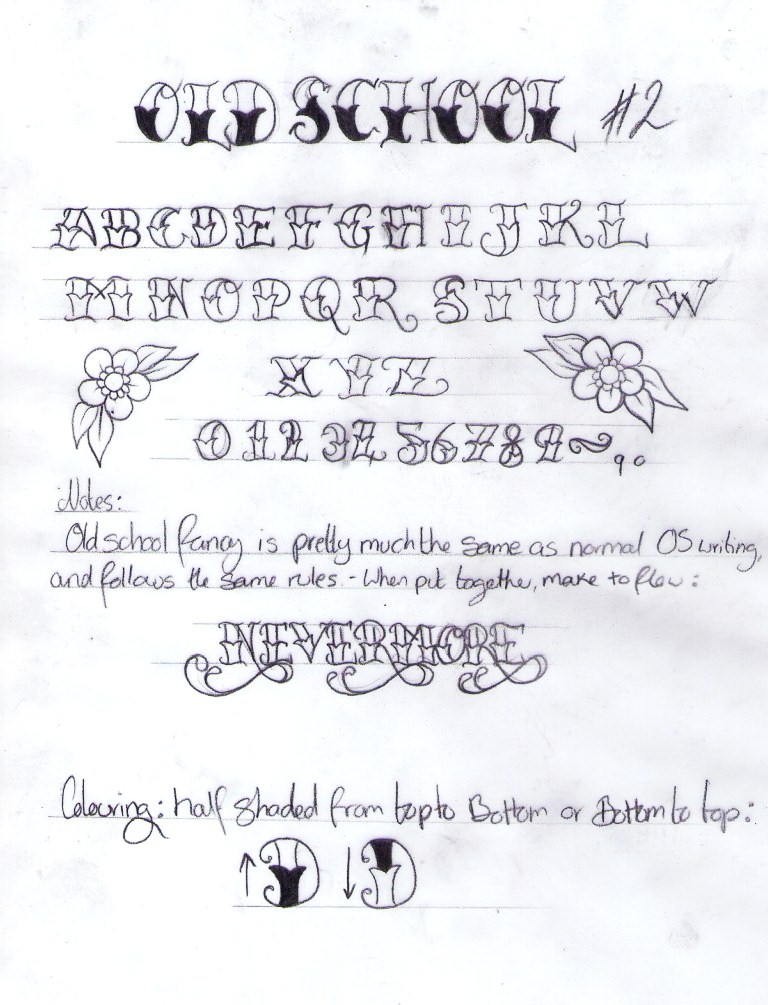 OLD SCHOOL #2
A B C D E F G H I J K L
M N O P Q R S T U V W
X Y Z
0 1 2 3 4 5 6 7 8 9 ~ , .
Notes:
Old school fancy is pretty much the same as normal OS writing,
and follows the same rules. - When put together, make to flow:
NEVERMORE
Colouring: half shaded from top to Bottom or Bottom to top:
↑ D ↓ D